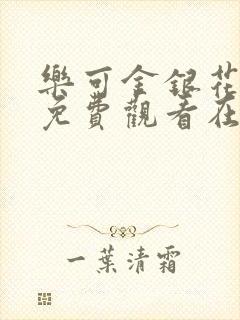 樂可金銀花
免費觀看在
一葉清霜